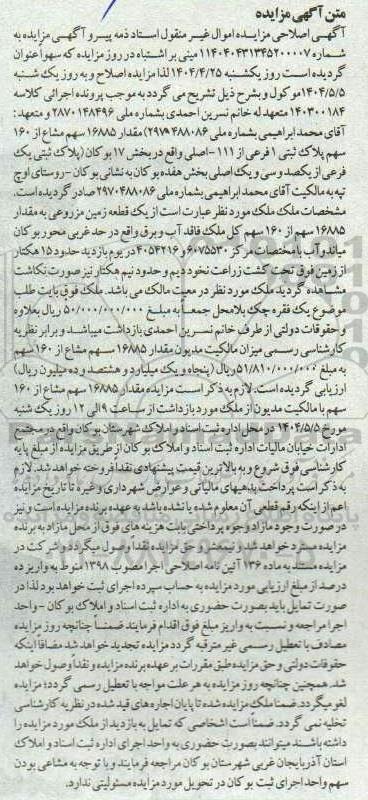 متن آگهی مزایده
آگهـی اصلاحی مزایـده اموال غیـر منقول اسناد ذمه پیـرو آگهـی مزایـده به
شماره ۱۱۴۰۴۰۴۳۱۳۴۵۲۰۰۰۰۷ مبنی بر اشتباه در روز مزایده که سهواً عنوان
گردیده است روز یکشنبه ۱۴۰۴/۴/۲۵ لذا مزایده اصلاح و به روز یک شنبه
۱۴۰۴/۵/۵ موکول و بشرح ذیل تشریح می گردد به موجب پرونده اجرائی کلاسه
۱۴۰۳۰۰۱۸۴ متعهد له خانم نسرین احمدی بشماره ملی ۲۸۷۰۱۴۸۴۹۶ و متعهد:
آقای محمد ابراهیمی بشماره ملی ۲۹۷۰۴۸۸۰۸۶ مقدار ۱۶۸۸۵ سهم مشاع از ۱۶۰
سهم پلاک ثبتی ۱ فرعی از ۱۱۱-اصلی واقع در بخش ۱۷ بوکان (پلاک ثبتی یک
فرعی از یکصد وسی و یک اصلی بخش هفده بوکان به نشانی بوکان - روستای اوچ
تپه به مالکیت آقای محمد ابراهیمی بشماره ملی ۲۹۷۰۴۸۸۰۸۶ صادر گردیده است.
مشخصات ملک ملک مورد نظر عبارت است از یک قطعه زمین مزروعی به مقدار
۱۶۸۸۵ سهم از ۱۶۰ سهم کل ملک فاقد آب و برق واقع در حد غربی محور بوکان
میاندرآب با مختصات مرکز ۶۰۷۵۵۳۰ و ۴۰۵۴۲۱۶ در یوم بازدید حدود ۱۵ هکتار
از زمین فوق تحت کشت زراعت نخود دیم و حدود نیم هکتار نیز صورت نکاشت
مشاهده گردید ملک مورد نظر در معیت مالک می باشد. ملک فوق بابت طلب
موضوع یک فقره چک بلامحل جمعاً به مبلغ ۵۰/۰۰۰/۰۰۰/۰۰۰ ریال بعلاوه
و حقوقات دولتی از طرف خانم نسرین احمدی بازداشت میباشد و برابر نظریه
کارشناسی رسمی میزان مالکیت مدیون مقدار ۱۶۸۸۵ سهم مشاع از ۱۶۰ سهم
به مبلغ ۵۱/۸۱۰/۰۰۰/۰۰۰ ریال (پنجاه و یک میلیارد و هشتصد و ده میلیون ریال)
ارزیابی گردیده است. لازم به ذکر است مزایده مقدار ۱۶۸۸۵ سهم مشاع از ۱۶۰
سهم با مالکیت مدیون از ملک مورد بازداشت از ساعت ۹ الی ۱۲ روز یک شنبه
مورخ ۱۴۰۴/۵/۵ در محل اداره ثبت اسناد و املاک شهرستان بوکان واقع در مجتمع
ادارات خیابان مالیات اداره ثبت اسناد و املاک بوکان از طریق مزایده از مبلغ پایه
کارشناسی فوق شروع و به بالاترین قیمت پیشنهادی نقدا فروخته خواهد شد. لازم
به ذکر است پرداخت بدهیهای مالیاتی و عوارض شهرداری و غیره تا تاریخ مزایده
اعم از اینکه رقم قطعی آن معلوم شده یا نشده باشد به عهده برنده مزایده است و نیز
در صورت وجود مازاد وجوه پرداختی بابت هزینه های فوق از محل مازاد به برنده
مزایده مسترد خواهد شد. و نیمعشر و حق مزایده نقداً وصول میگردد و شرکت در
مزایده مستند به ماده ۱۳۶ آئین نامه اصلاحی اجرا مصوب ۱۳۹۸ منوط به واریز ده
درصد از مبلغ ارزیابی مورد مزایده به حساب سپرده اجرای ثبت خواهد بود لذا در
صورت تمایل باید بصورت حضوری به اداره ثبت اسناد و املاک بوکان - واحد
اجرا مراجعه و نسبت به واریز مبلغ فوق اقدام فرمایند ضمناً چنانچه روز مزایده
مصادف با تعطیل رسمی غیر مترقبه گردد مزایده تجدید خواهد شد مضافاً اینکه
حقوقات دولتی و حق مزایده طبق مقررات بر عهده برنده مزایده و نقداً وصول خواهد
شد. همچنین چنانچه روز مزایده به هر علت مواجه با تعطیل رسمی گردد؛ مزایده
لغو میگردد. ضمنا ملک مزایده شده تا پایان اجاره های قید شده در نظریه کارشناسی
تخلیه نمی گردد. ضمناً است اشخاصی که تمایل به بازدید از ملک مورد مزایده را
داشته باشند میتوانند بصورت حضوری به واحد اجرای اداره ثبت اسناد و املاک
استان آذربایجان غربی شهرستان بوکان مراجعه فرمایند و با توجه به مشاعی بودن
سهم واحد اجرای ثبت بوکان در تحویل مورد مزایده مسئولیتی ندارد.